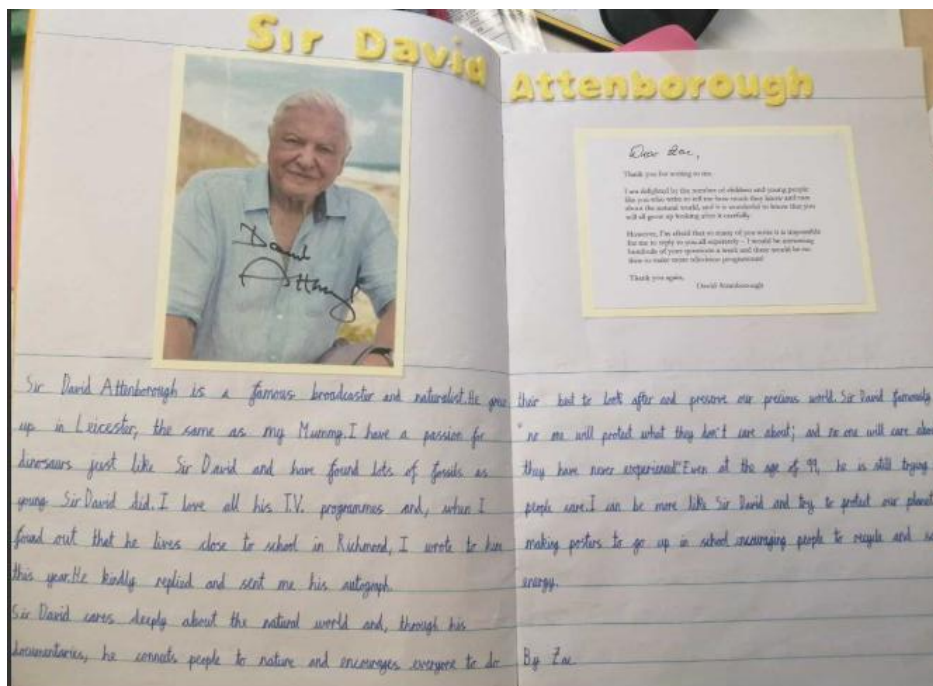 Sir David Attenborough
David
Dear Zac,
Thank you for writing to me.
I am delighted by the number of children and young people
like you who write to tell me how much they know and care
about the natural world, and it is wonderful to know that you
will all grow up looking after it carefully.
However, I'm afraid that so many of you write it is impossible
for me to reply to you all separately – I would be answering
hundreds of your questions a week and there would be no
time to make more television programmes!
Thank you again,
David Attenborough
Sir David Attenborough is a famous broadcaster and naturalist. He grew
up in Leicester, the same as my Mummy. I have a passion for
dinosaurs just like Sir David and have found lots of fossils as
young Sir David did. I love all his T.V. programmes and, when I
found out that he lives close to school in Richmond, I wrote to him
this year. He kindly replied and sent me his autograph.
Sir David cares deeply about the natural world and, through his
documentaries, he connects people to nature and encourages everyone to do
their best to look after and preserve our precious world. Sir David famously
"no one will protect what they don't care about; and no one will care abou
they have never experienced" Even at the age of 99, he is still trying
people care. I can be more like Sir David and try to protect our planet
making posters to go up in school encouraging people to recycle and
energy.
By Zac